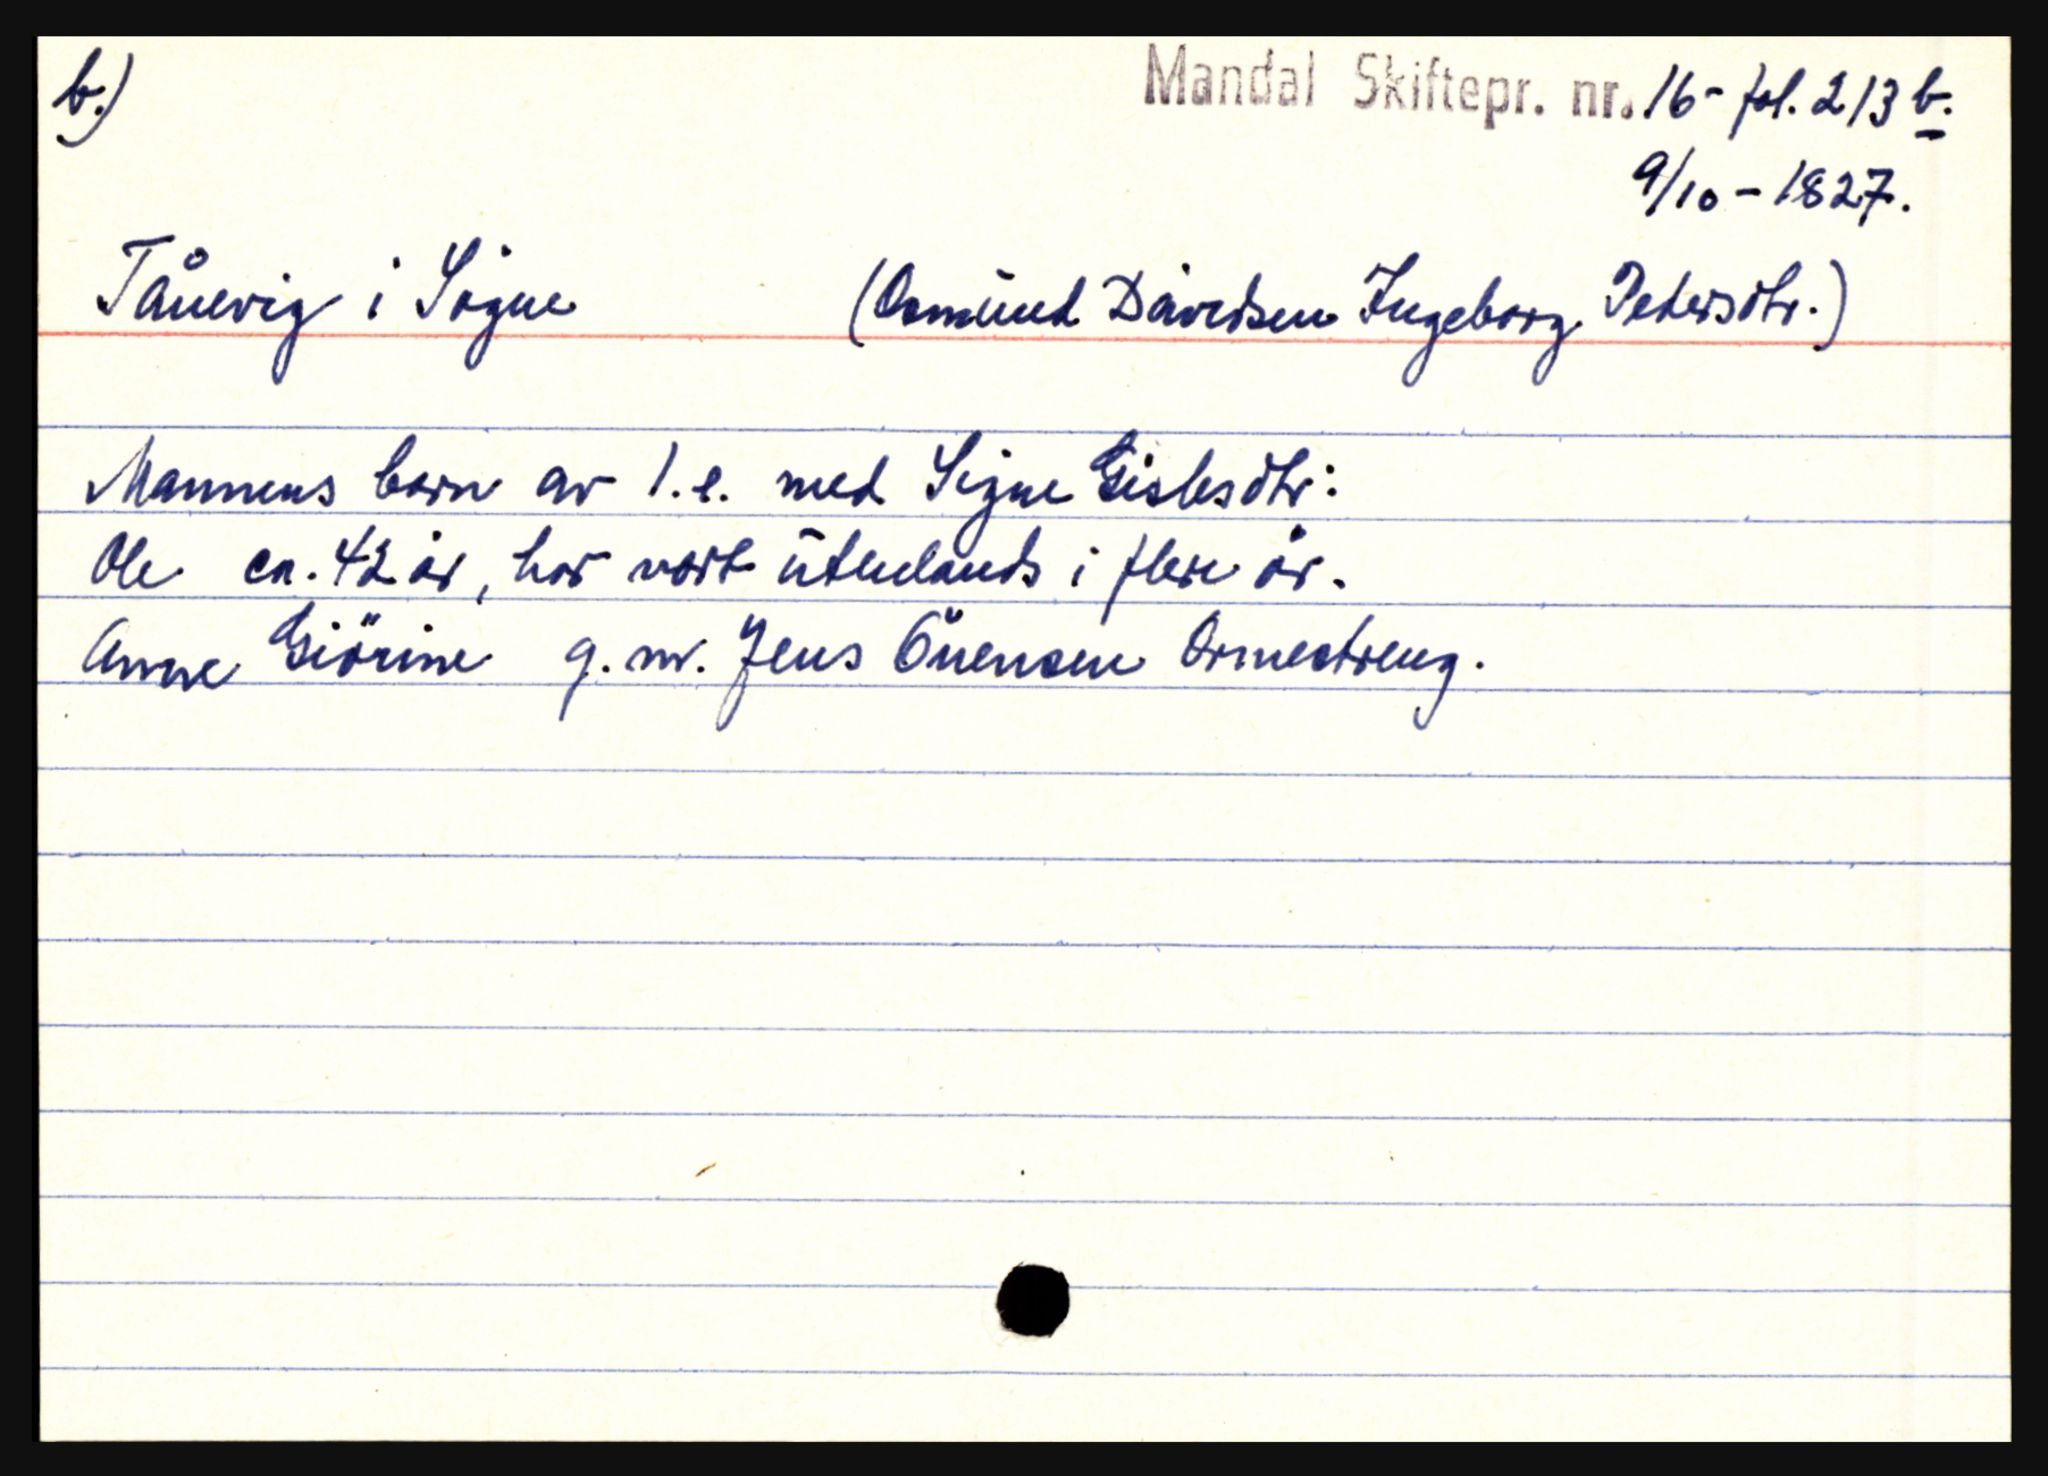 b.)
Mandal Skiftepr. nr. 16 - fol. 213 b.
9/10 - 1827.
Tånevig i Søgne (Osmund Davidsen Ingeborg Petersdtr.)
Mannens born av 1. e. med Signe Gislesdtr:
Ole ca. 42 år, har vært utenlands i flere år.
Anne Giörine g. m. Jens Ånensen Ormestreng.